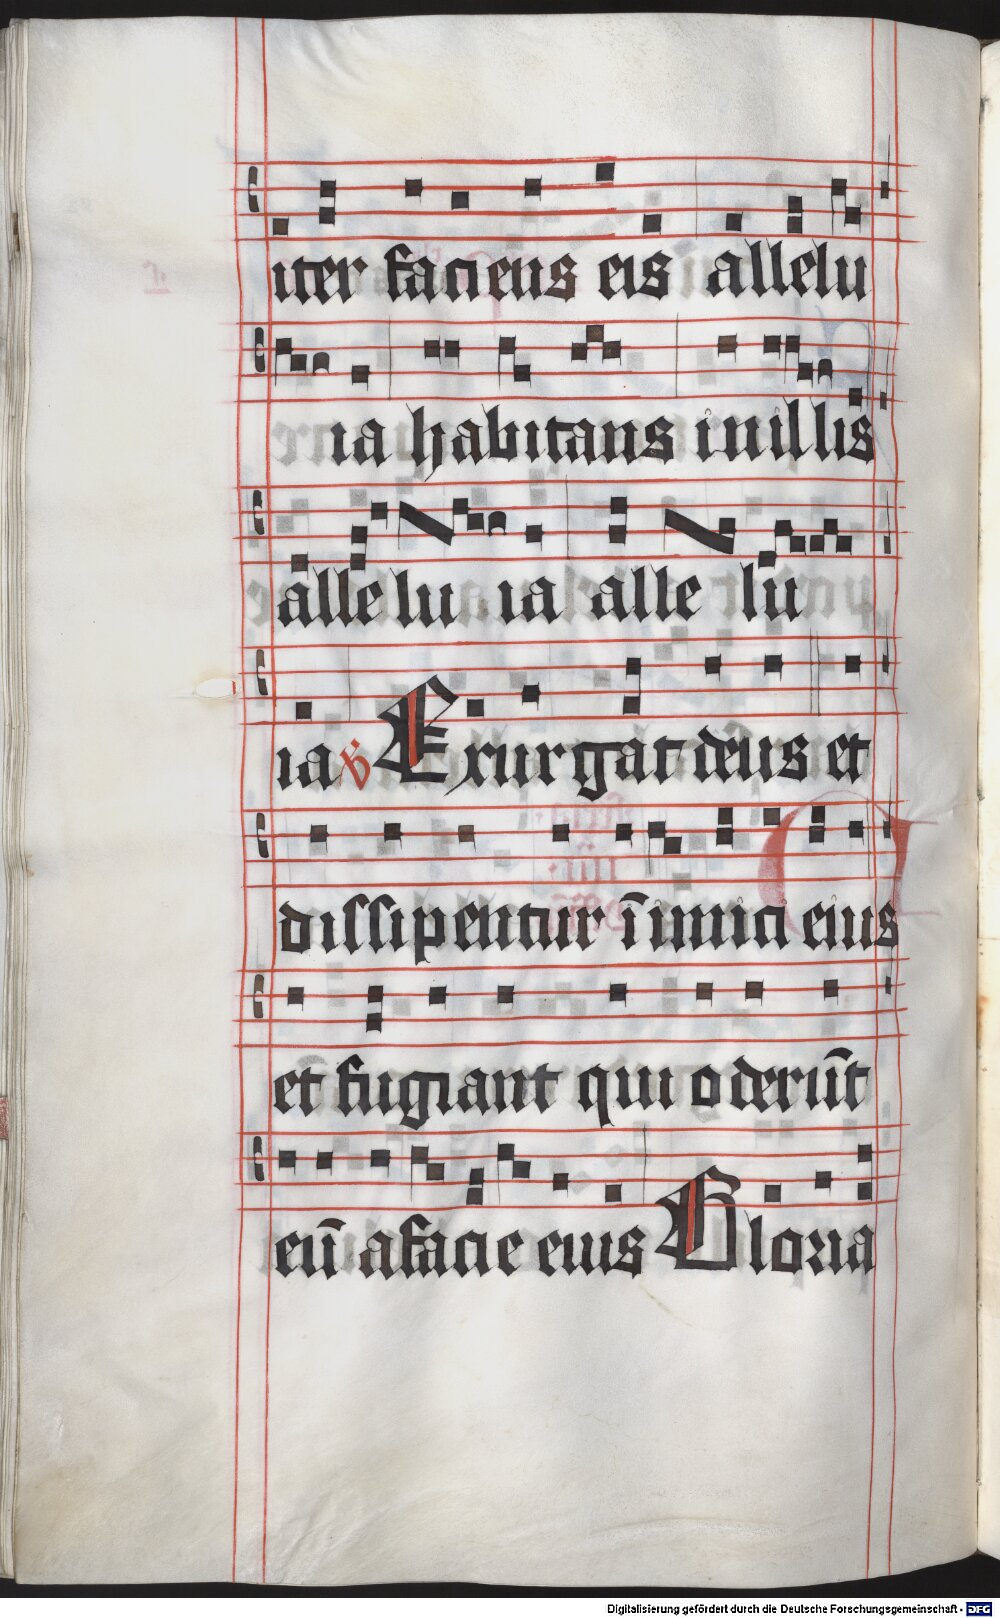 iter faciens eis allelu
ia habitans in illis
allelu ia alle lu
ia ℣ Exurgat deus et
dissipentur īimici eius
et fugiant qui oderūt
eū a facie eius Gloria
Digitalisierung gefördert durch die Deutsche Forschungsgemeinschaft - DFG